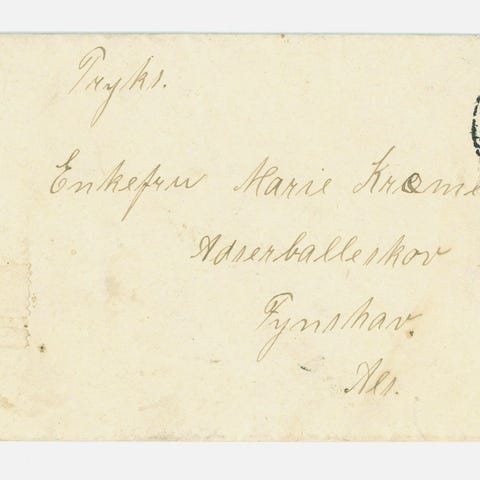 Tryks.
Enkefru Marie Kreme
Adserballeskov
Fynshav.
Als.